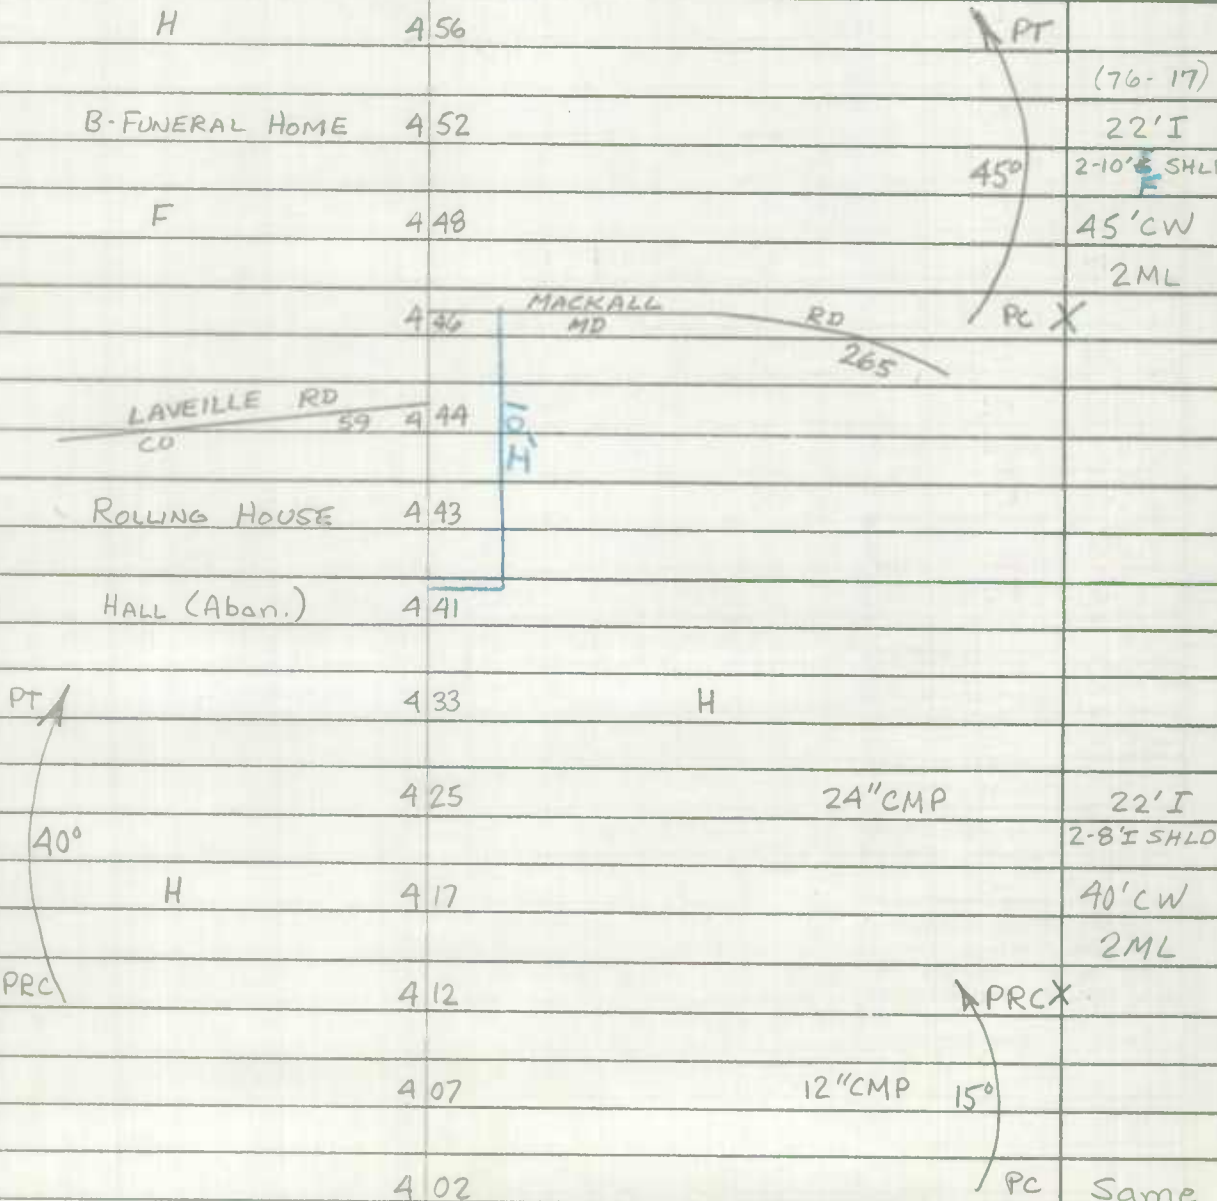 H 4 56 PT
(76-17)
B-FUNERAL HOME 4 52 22'I
45° 2-10' F SHLD
F 4 48 45'CW
2ML
4 46 MACKALL RD PC X
MD 265
LAVEILLE RD 4 44
CO 59
10'H
ROLLING HOUSE 4 43
HALL (Aban.) 4 41
PT 4 33 H
4 25 24"CMP 22'I
40° 2-8'I SHLD
H 4 17 40'CW
2ML
PRC 4 12 PRC X
4 07 12"CMP 15°
4 02 PC Same